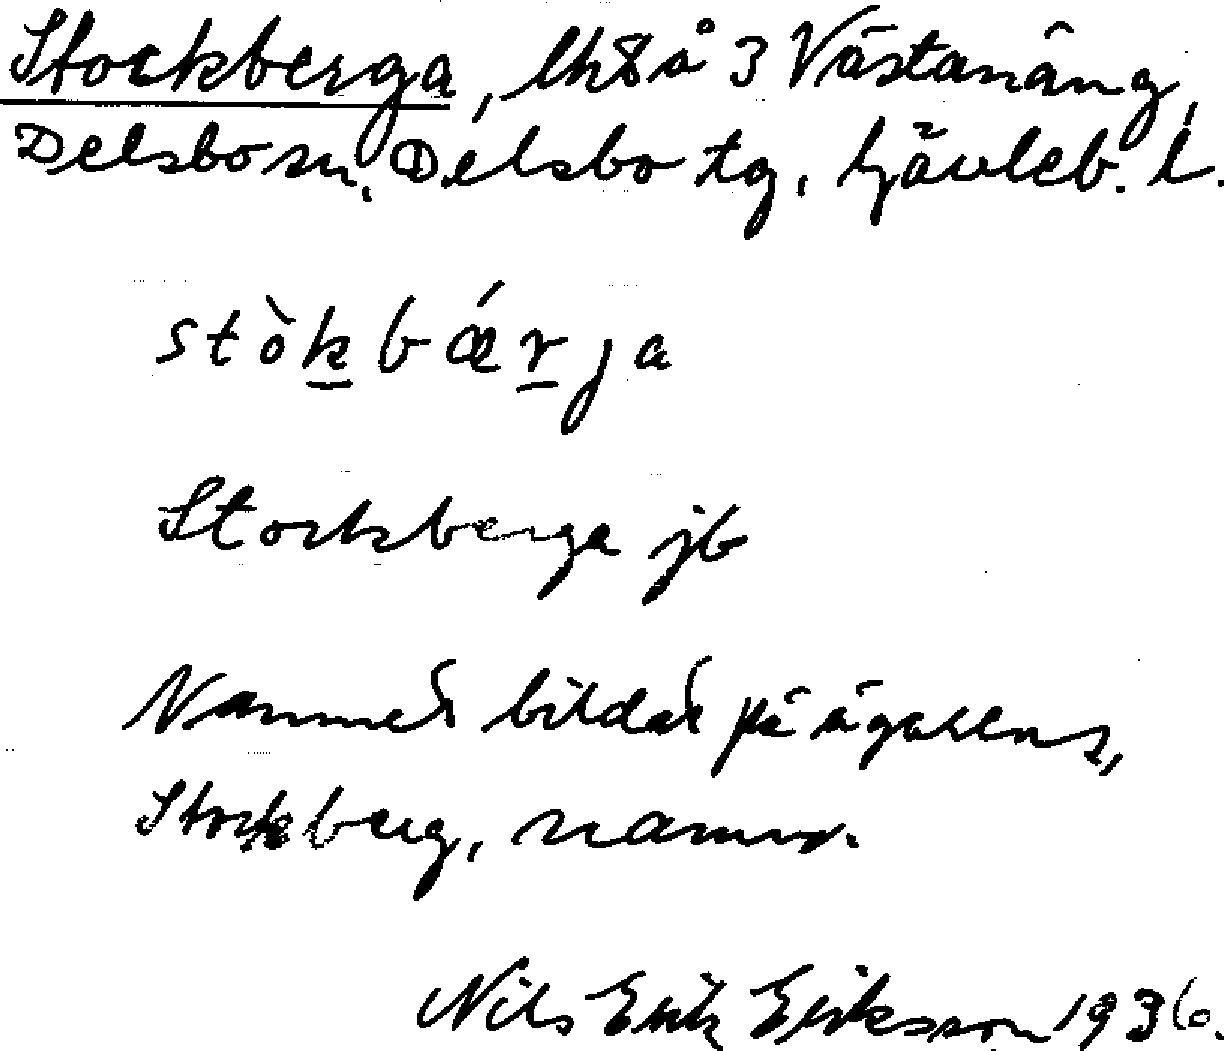 Stockberga, lht å 3 Västanäng,
Delsbo sn. Delsbo tg. Gävleb. l.
stòk̲bǽr̲ja
Stockberga jb
Namnet bildat på ägarens,
Stockberg, namn.
Nils Erik Eriksson 1936.